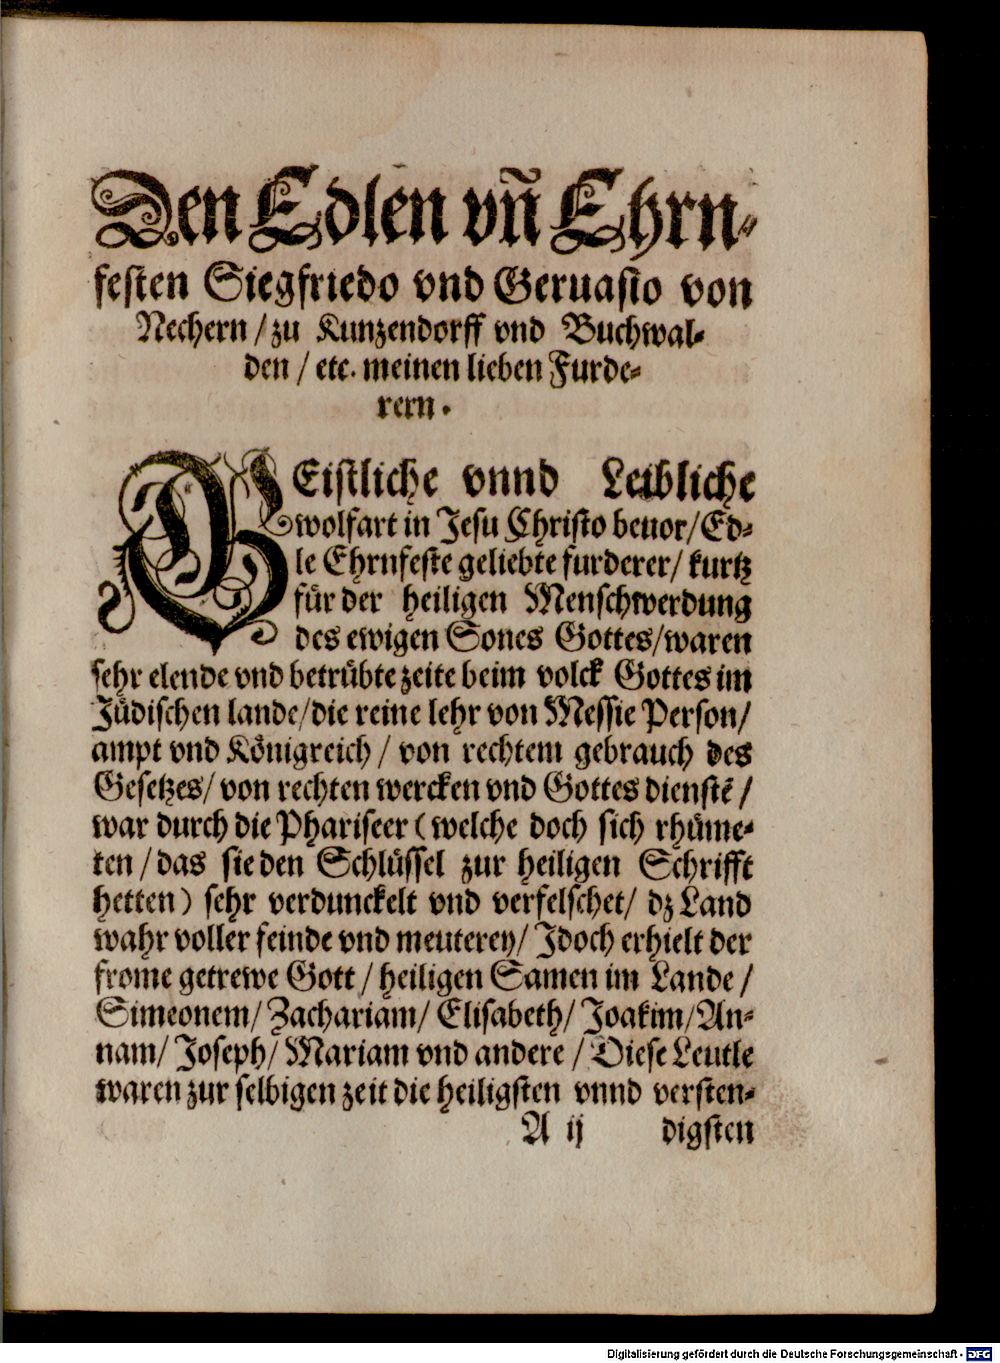 Den Edlen vñ Ehrn-
festen Siegfriedo vnd Geruasio von
Nechern / zu Kunzendorff vnd Buchwal-
den / etc. meinen lieben Furde-
rern.
GEistliche vnnd Leibliche
wolfart in Jesu Christo beuor/Ed-
le Ehrnfeste geliebte furderer/ kurtz
für der heiligen Menschwerdung
des ewigen Sones Gottes/waren
sehr elende vnd betrübte zeite beim volck Gottes im
Jüdischen lande/die reine lehr von Messie Person/
ampt vnd Königreich / von rechtem gebrauch des
Gesetzes/ von rechten wercken vnd Gottes dienstē /
war durch die Phariseer (welche doch sich rhüme-
ten / das sie den Schlüssel zur heiligen Schrifft
hetten) sehr verdunckelt vnd verfelschet/ dz Land
wahr voller feinde vnd meuterey/ Jdoch erhielt der
frome getrewe Gott / heiligen Samen im Lande /
Simeonem/ Zachariam/ Elisabeth/ Joakim/An-
nam/ Joseph/ Mariam vnd andere / Diese Leutle
waren zur selbigen zeit die heiligsten vnnd versten-
A ij digsten
Digitalisierung gefördert durch die Deutsche Forschungsgemeinschaft - DFG